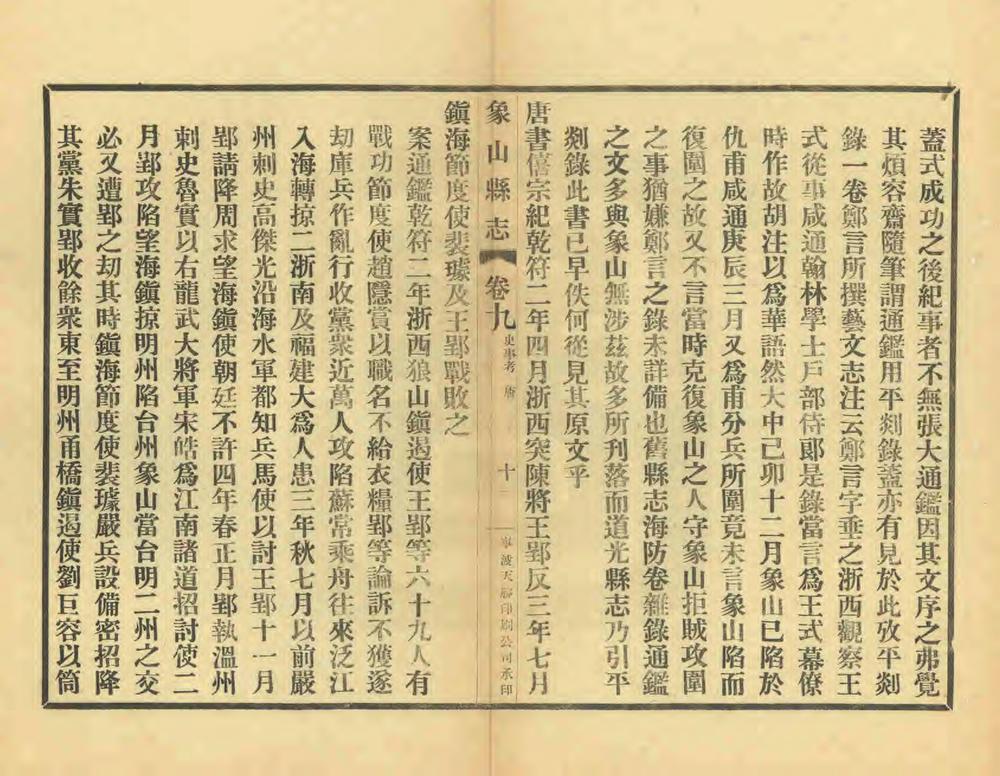 蓋式成功之後紀事者不無張大通鑑因其文序之弗覺
其煩容齋隨筆謂通鑑用平剡錄蓋亦有見於此攷平剡
錄一卷鄭言所撰藝文志注云鄭言字垂之浙西觀察王
式從事咸通翰林學士戶部侍郞是錄當言爲王式幕僚
時作故胡注以爲華語然大中己卯十二月象山已陷於
仇甫咸通庚辰三月又爲甫分兵所圍竟未言象山陷而
復圍之故又不言當時克復象山之人守象山拒賊攻圍
之事猶嫌鄭言之錄未詳備也舊縣志海防卷雜錄通鑑
之文多與象山無涉茲故多所刋落而道光縣志乃引平
剡錄此書已早佚何從見其原文乎
唐書僖宗紀乾符二年四月浙西突陳將王郢反三年七月
象山縣志 卷九 史事考 唐 十 寧波天勝印刷公司承印
鎭海節度使裴璩及王郢戰敗之
案通鑑乾符二年浙西狼山鎭遏使王郢等六十九人有
戰功節度使趙隱賞以職名不給衣糧郢等論訴不獲遂
劫庫兵作亂行收黨衆近萬人攻陷蘇常乘舟往來泛江
入海轉掠二浙南及福建大爲人患三年秋七月以前嚴
州刺史高傑光沿海水軍都知兵馬使以討王郢十一月
郢請降周求望海鎭使朝廷不許四年春正月郢執溫州
刺史魯實以右龍武大將軍宋皓爲江南諸道招討使二
月郢攻陷望海鎭掠明州陷台州象山當台明二州之交
必又遭郢之劫其時鎭海節度使裴璩嚴兵設備密招降
其黨朱實郢收餘衆東至明州甬橋鎭遏使劉巨容以筒